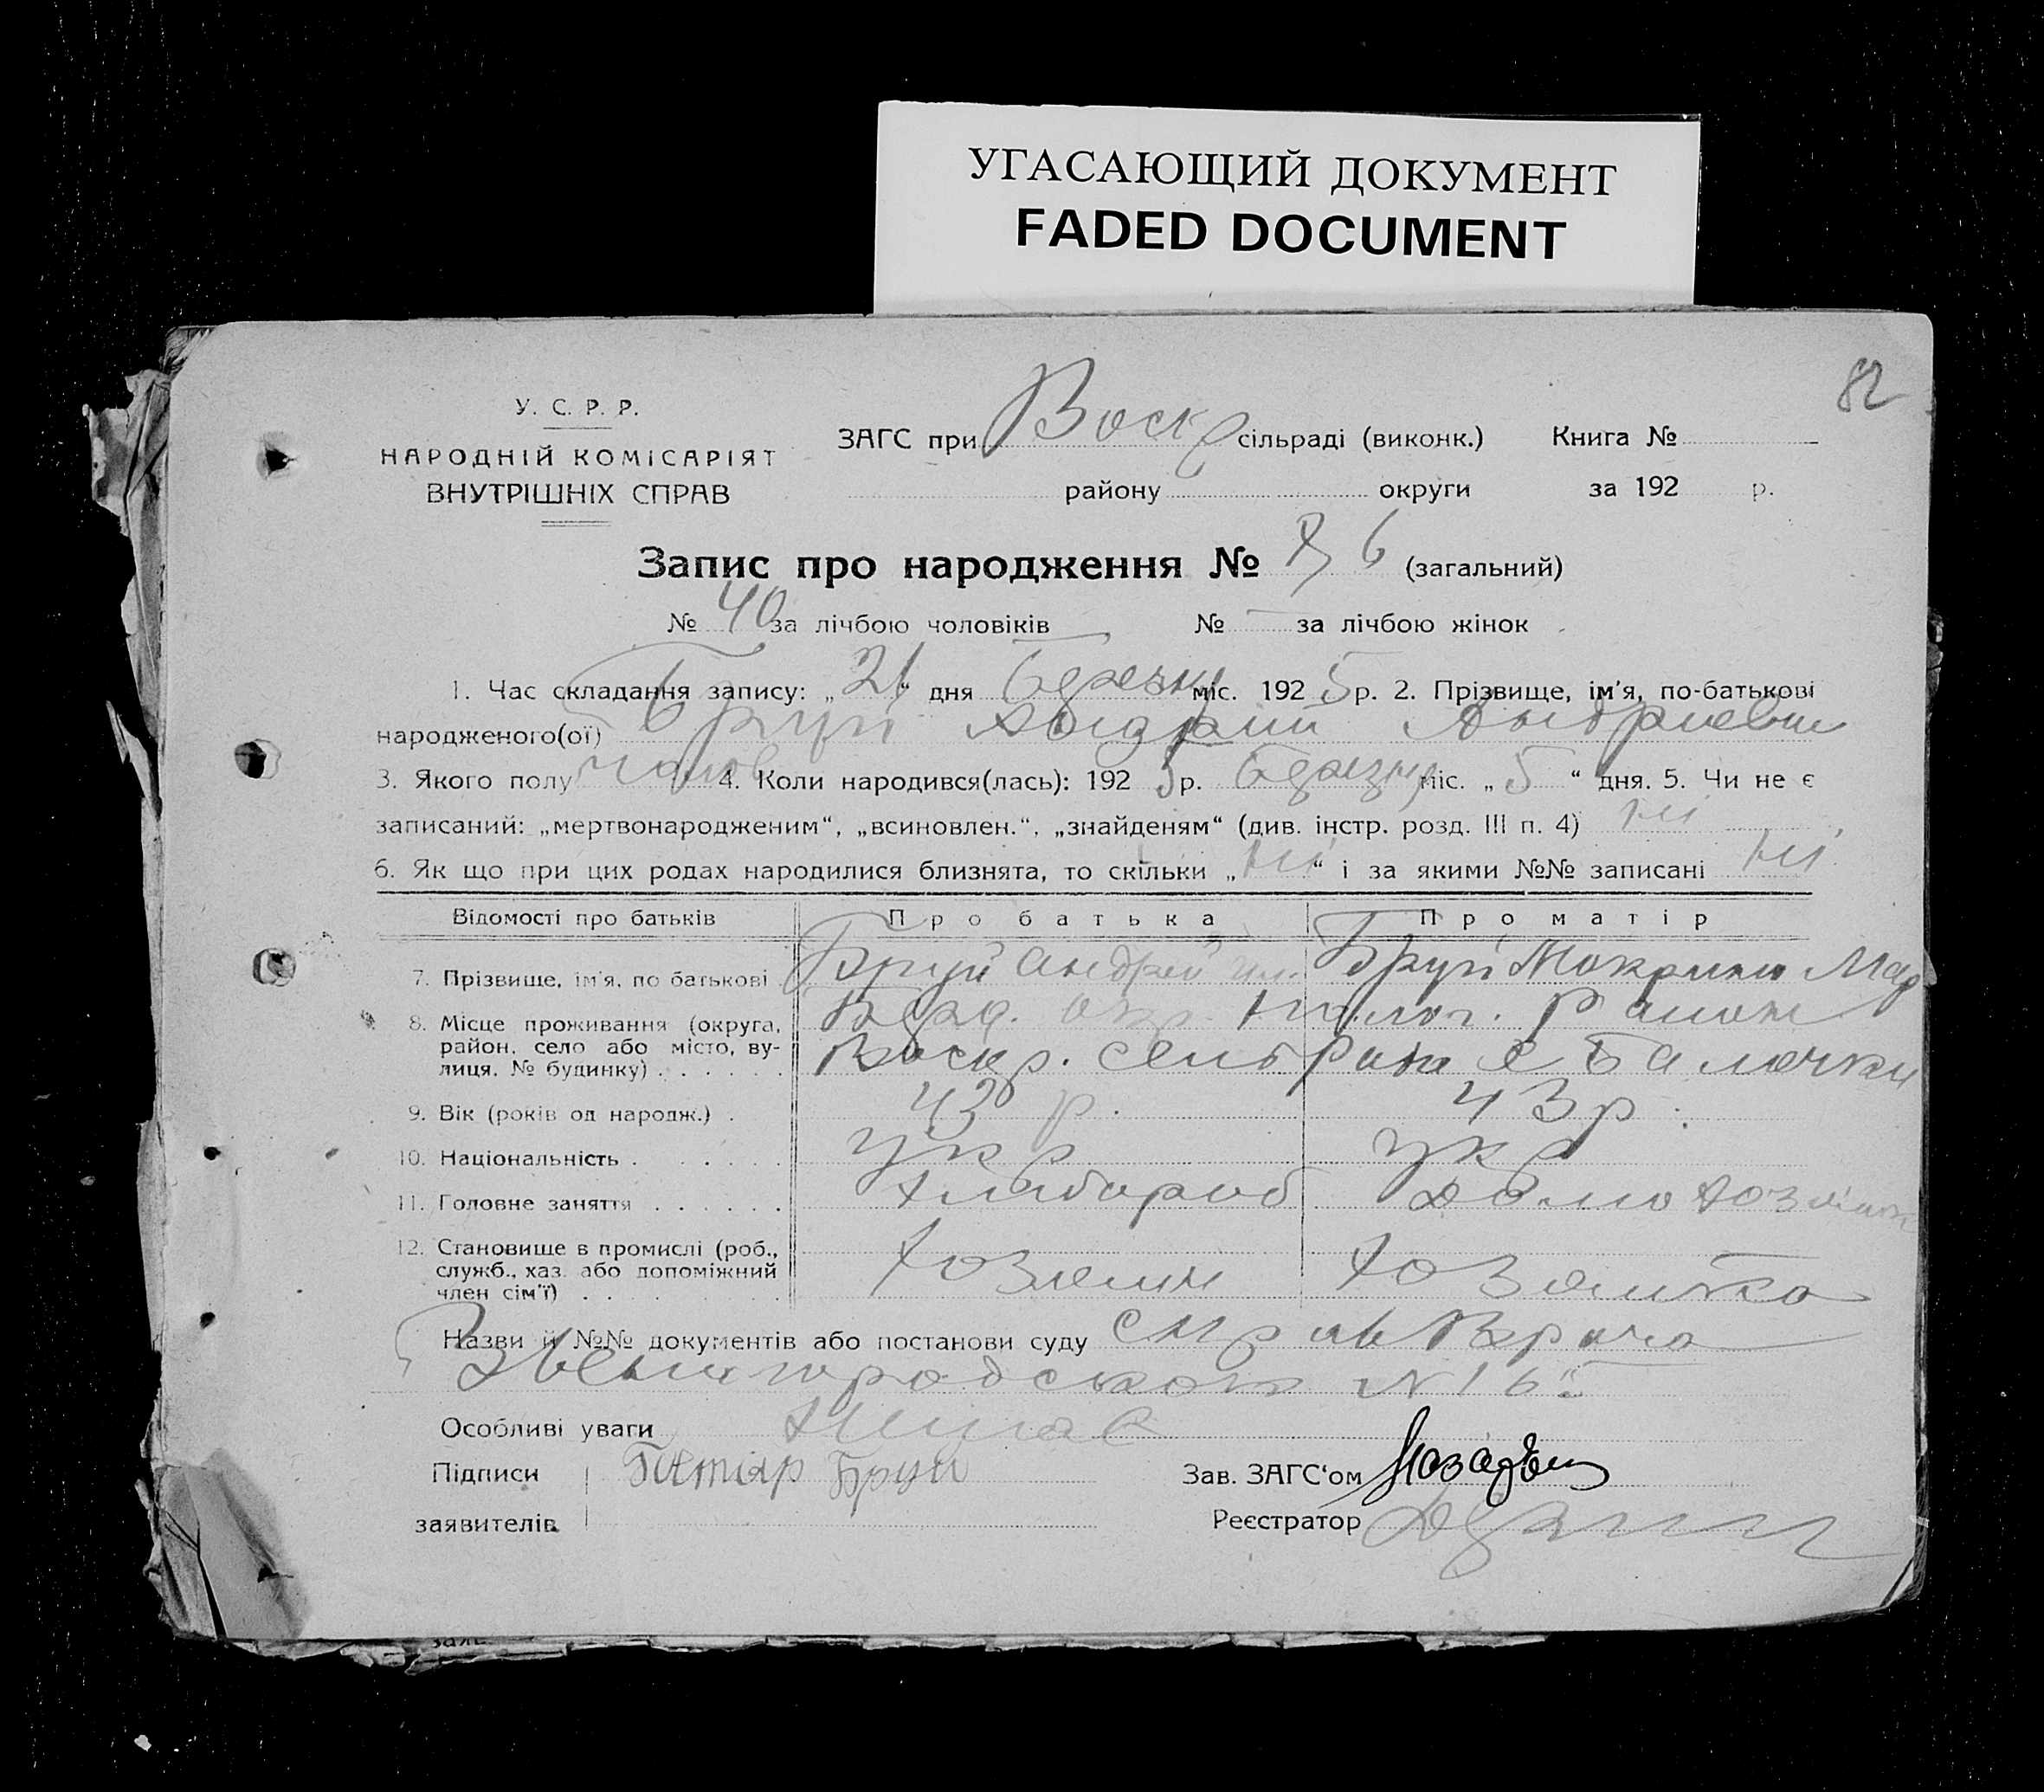 УГАСАЮЩИЙ ДОКУМЕНТ
FADED DOCUMENT
82
У. С. Р. Р.
НАРОДНІЙ КОМІСАРІЯТ
ВНУТРІШНІХ СПРАВ
ЗАГС при Воскр сільраді (виконк.) Книга №
району округи за 192 р.
Запис про народження № 6 (загальний)
№ 40 за лічбою чоловіків № — за лічбою жінок
1. Час складання запису: „21“ дня березня міс. 1925 р. 2. Прізвище, ім'я, по-батькові
народженого(ої) Бруй Андрій Андриевич
3. Якого полу чолов 4. Коли народився(лась): 1925 р. березня міс. „5“ дня. 5. Чи не є
записаний: „мертвонародженим“, „всиновлен.“, „знайденям“ (див. інстр. розд. III п. 4) ні
6. Як що при цих родах народилися близнята, то скільки „ні“ і за якими №№ записані ні
Відомості про батьків Про батька Про матір
7. Прізвище, ім'я, по батькові Бруй Андрей Бруй Мокрина
8. Місце проживання (округа, Берд. окр. Полог. Район
район, село або місто, ву- Воскр. сельрада с Балочки
лиця, № будинку)
9. Вік (років од народж.) 43 р. 43 р.
10. Національність укр укр
11. Головне заняття Хлебороб Домохозяйк
12. Становище в промислі (роб., Хозяин Хозяйка
служб., хаз. або допоміжний
член сім'ї)
Назви й №№ документів або постанови суду справ Врача
Звенигородского N 16
Особливі уваги
Підписи Бруй
заявителів
Зав. ЗАГС'ом
Реєстратор